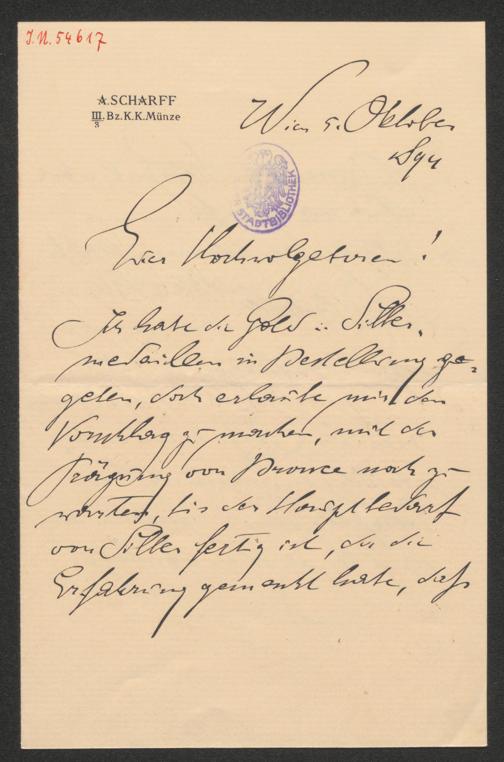 J.N. 54617
A. SCHARFF
III/3 Bz. K.K. Münze
Wien 5. Oktober
1894
STADTBIBLIOTHEK
Euer Hochwolgeboren!
Ich habe die Gold u. Silber-
medaillen in Bestellung ge-
geben, doch erlaube mir den
Vorschlag zu machen, mit der
Prägung von Bronce noch zu
warten, bis der Hauptbedarf
von Silber fertig ist, da die
Erfahrung gemacht habe, daß